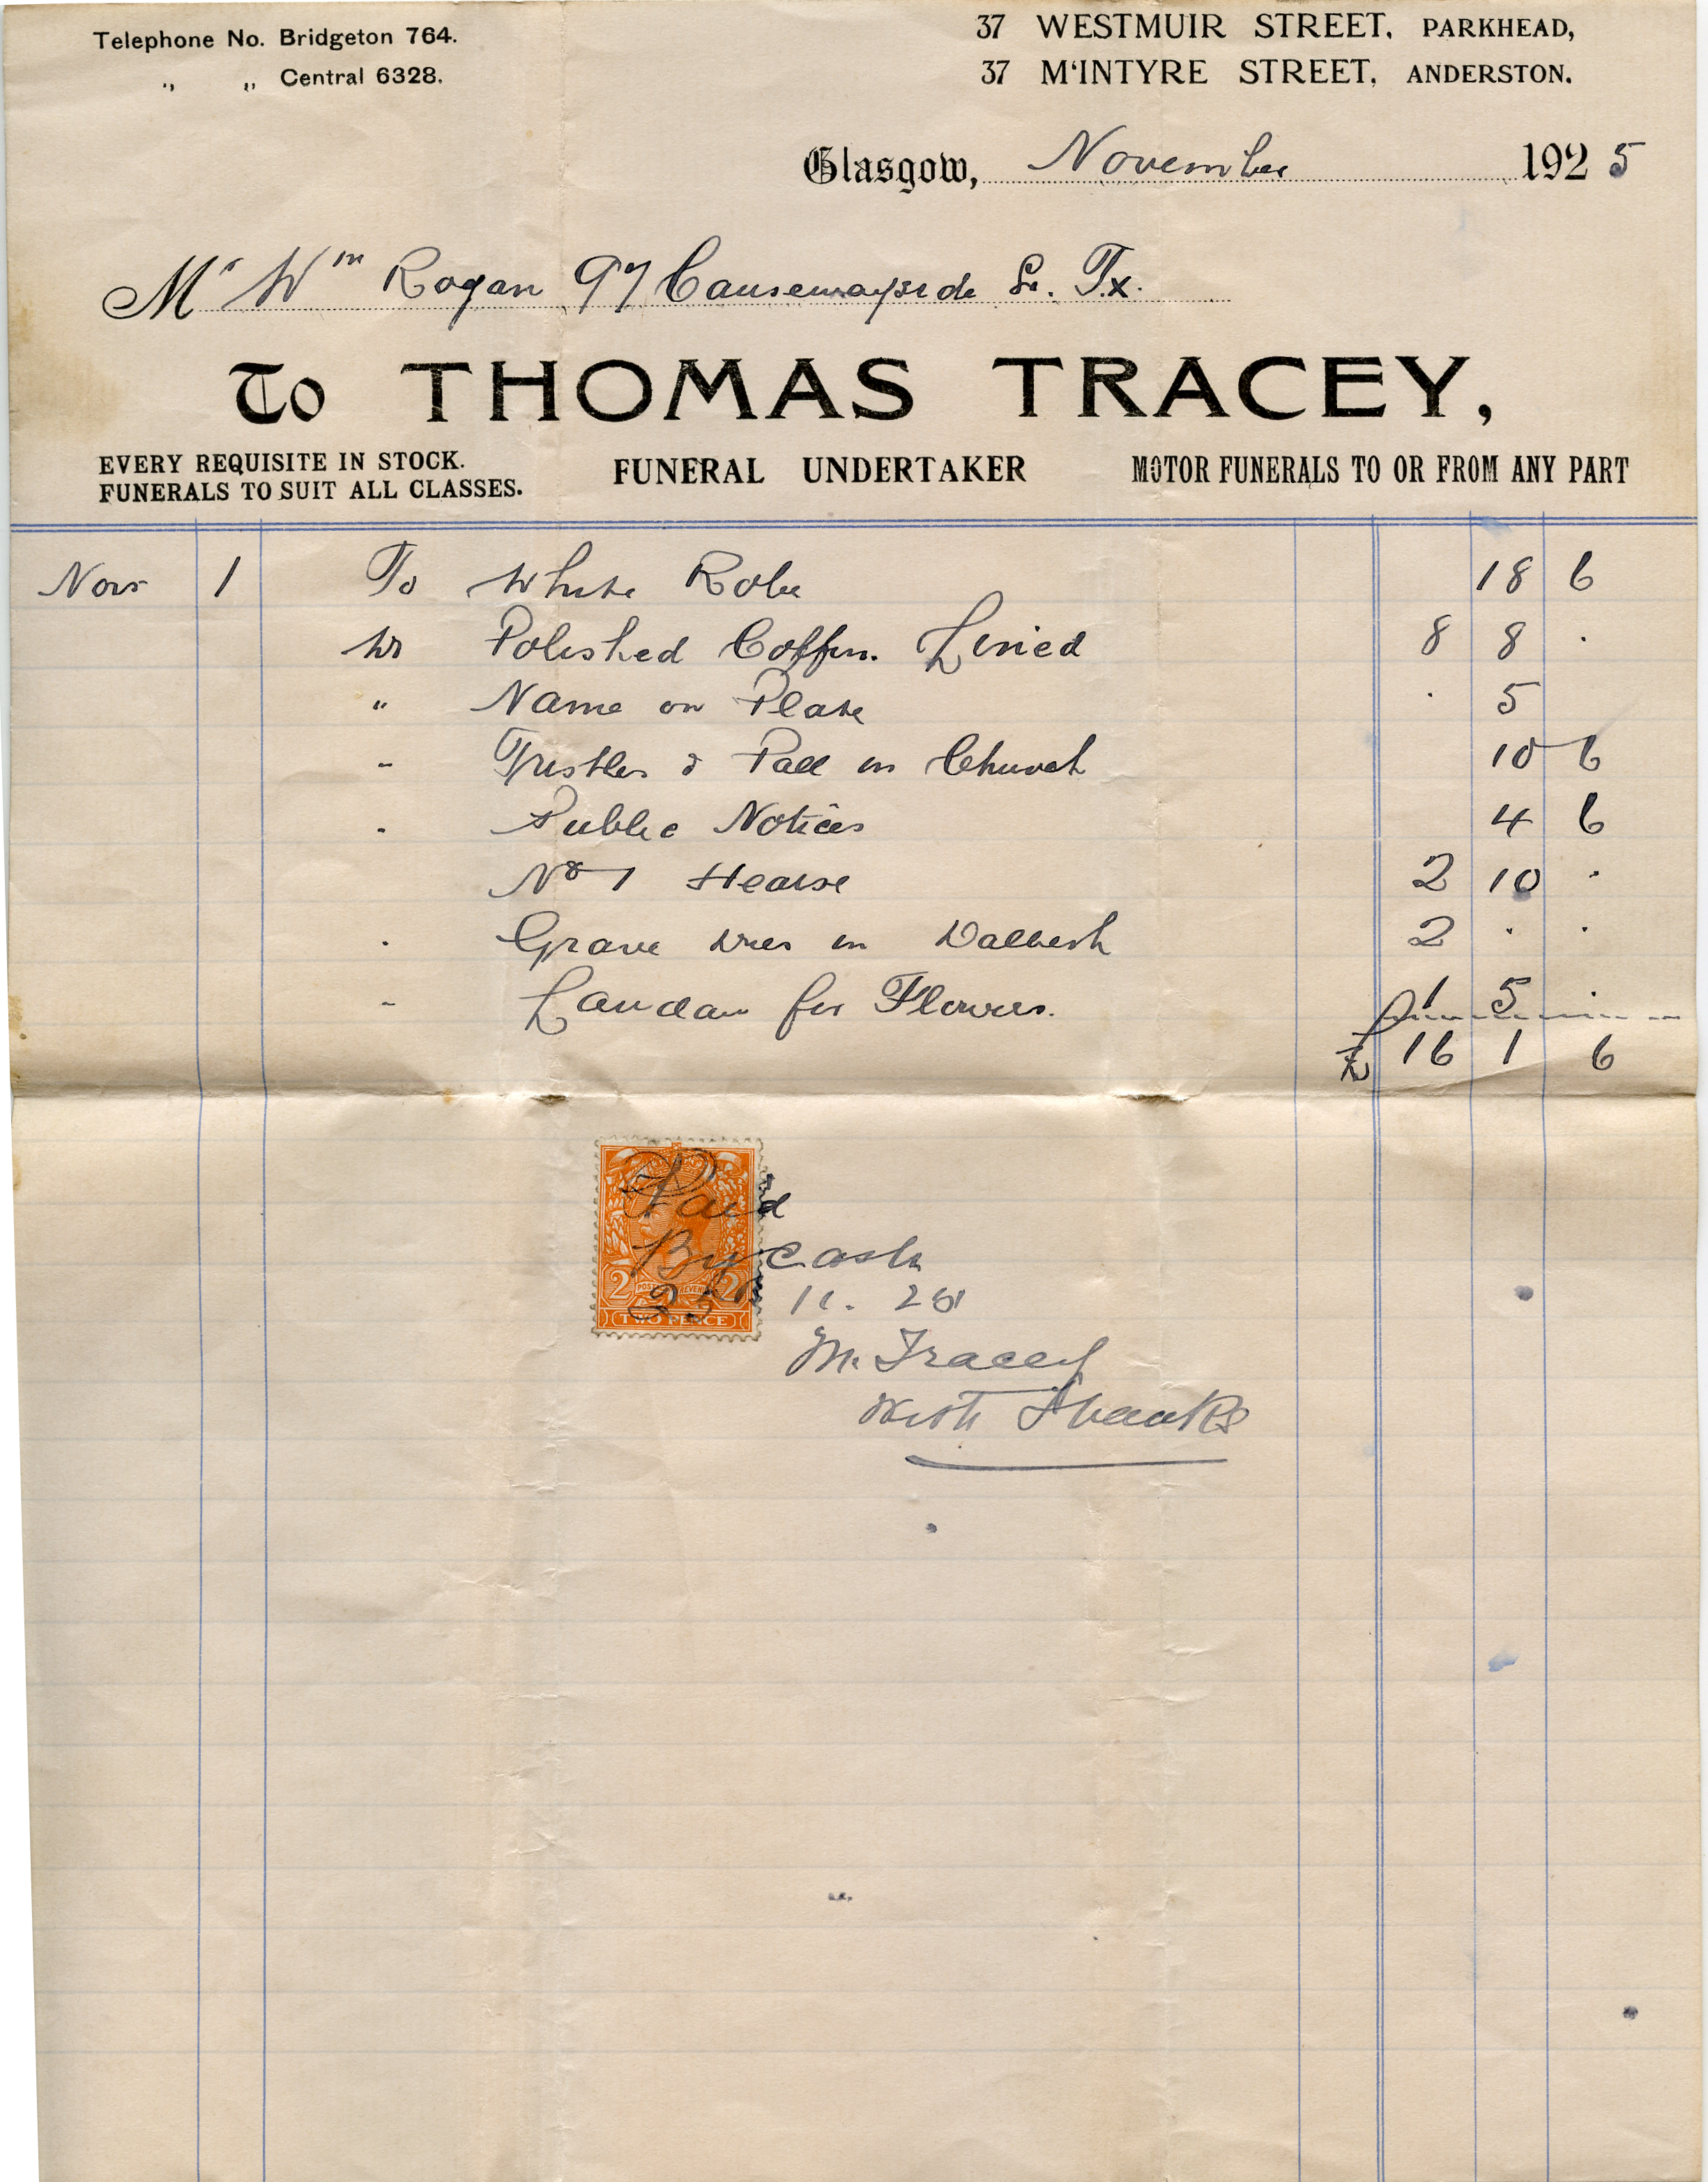 Telephone No. Bridgeton 764.
„ „ Central 6328.
37 WESTMUIR STREET, PARKHEAD,
37 M‘INTYRE STREET, ANDERSTON.
Glasgow, November 1925
Mr Wm Rogan 97 Causewayside St. Tx.
To THOMAS TRACEY,
EVERY REQUISITE IN STOCK.
FUNERALS TO SUIT ALL CLASSES.
FUNERAL UNDERTAKER
MOTOR FUNERALS TO OR FROM ANY PART
Nov 1 To White Robe 18 6
Polished Coffin. Lined 8 8 .
" Name on Plate . 5
" Trestles & Pall in Church 10 6
" Public Notices 4 6
No 1 Hearse 2 10 .
" Grave Dues in Dalbeth 2 . .
" Landau for Flowers. 1 5 .
£ 16 1 6
Paid
By Cash
25 11. 25
M. Tracey
With Thanks
2 POSTAGE REVENUE 2
TWO PENCE